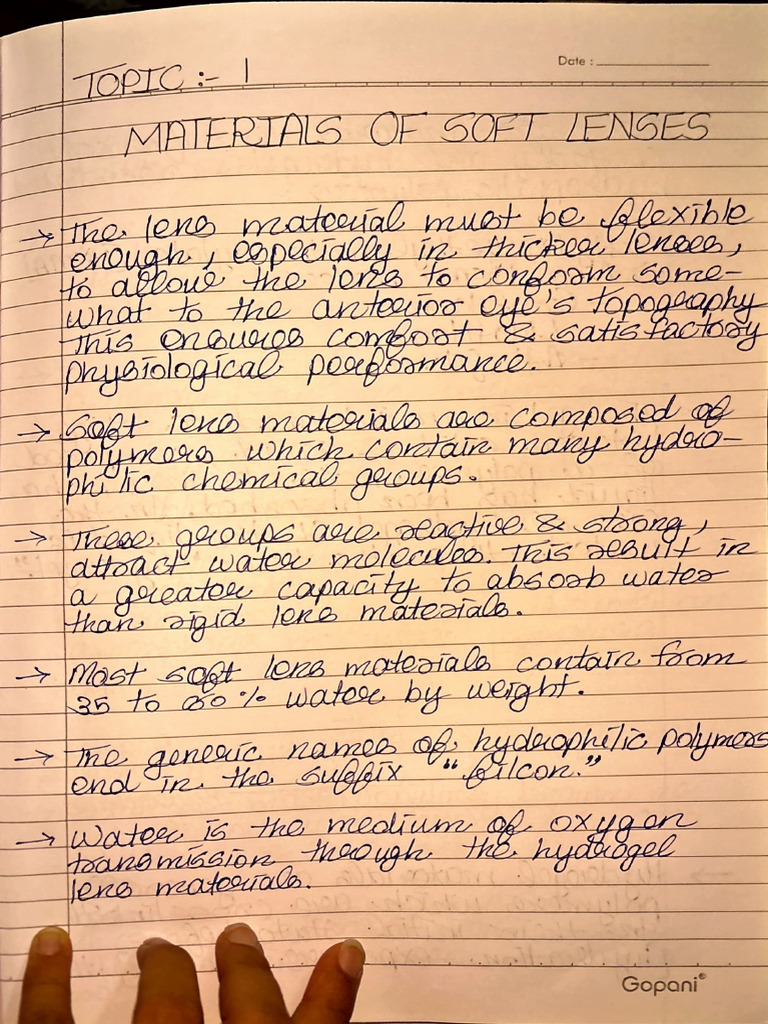 Date :
TOPIC :- 1
MATERIALS OF SOFT LENSES
→ The lens material must be flexible
enough, especially in thicker lenses,
to allow the lens to conform some-
what to the anterior eye's topography
This ensures comfort & satisfactory
physiological performance.
→ Soft lens materials are composed of
polymers which contain many hydro-
philic chemical groups.
→ These groups are reactive & strong,
attract water molecules. This result in
a greater capacity to absorb water
than rigid lens materials.
→ Most soft lens materials contain from
35 to 80% water by weight.
→ The generic names of hydrophilic polymers
end in the suffix "filcon."
→ Water is the medium of oxygen
transmission through the hydrogel
lens materials.
Gopani®